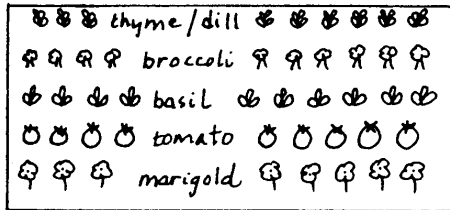 thyme/dill
broccoli
basil
tomato
marigold